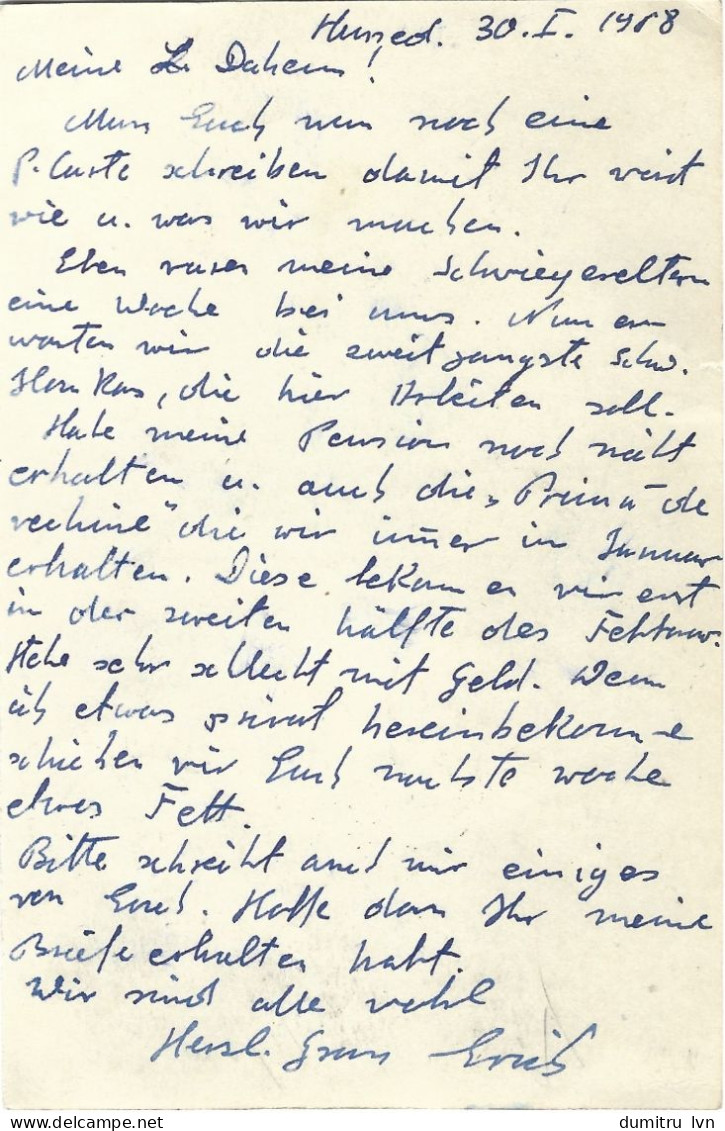 30. I. 1958
Meine Lb Daheim!
Muss Euch nun noch eine
P. Carte schreiben damit Ihr weist
wie u. was wir machen.
Eben waren meine Schwiegereltern
eine Woche bei uns. Nun er
warten wir die zweitjüngste Schw.
die hier Arbeiten soll.
Habe meine Pension noch nicht
erhalten u. auch die „Prima de
vechime" die wir immer im Januar
erhalten. Diese bekommen wir erst
in der zweiten hälfte des Februar.
Stehe sehr schlecht mit Geld. Wenn
ich etwas privat hereinbekomme
schicken wir Euch nächste woche
etwas Fett.
Bitte schreibt auch mir einiges
von Euch. Hoffe dass Ihr meine
Briefe erhalten habt.
Wir sind alle wohl
Herzl. Gruss Erich
dumitru lvn